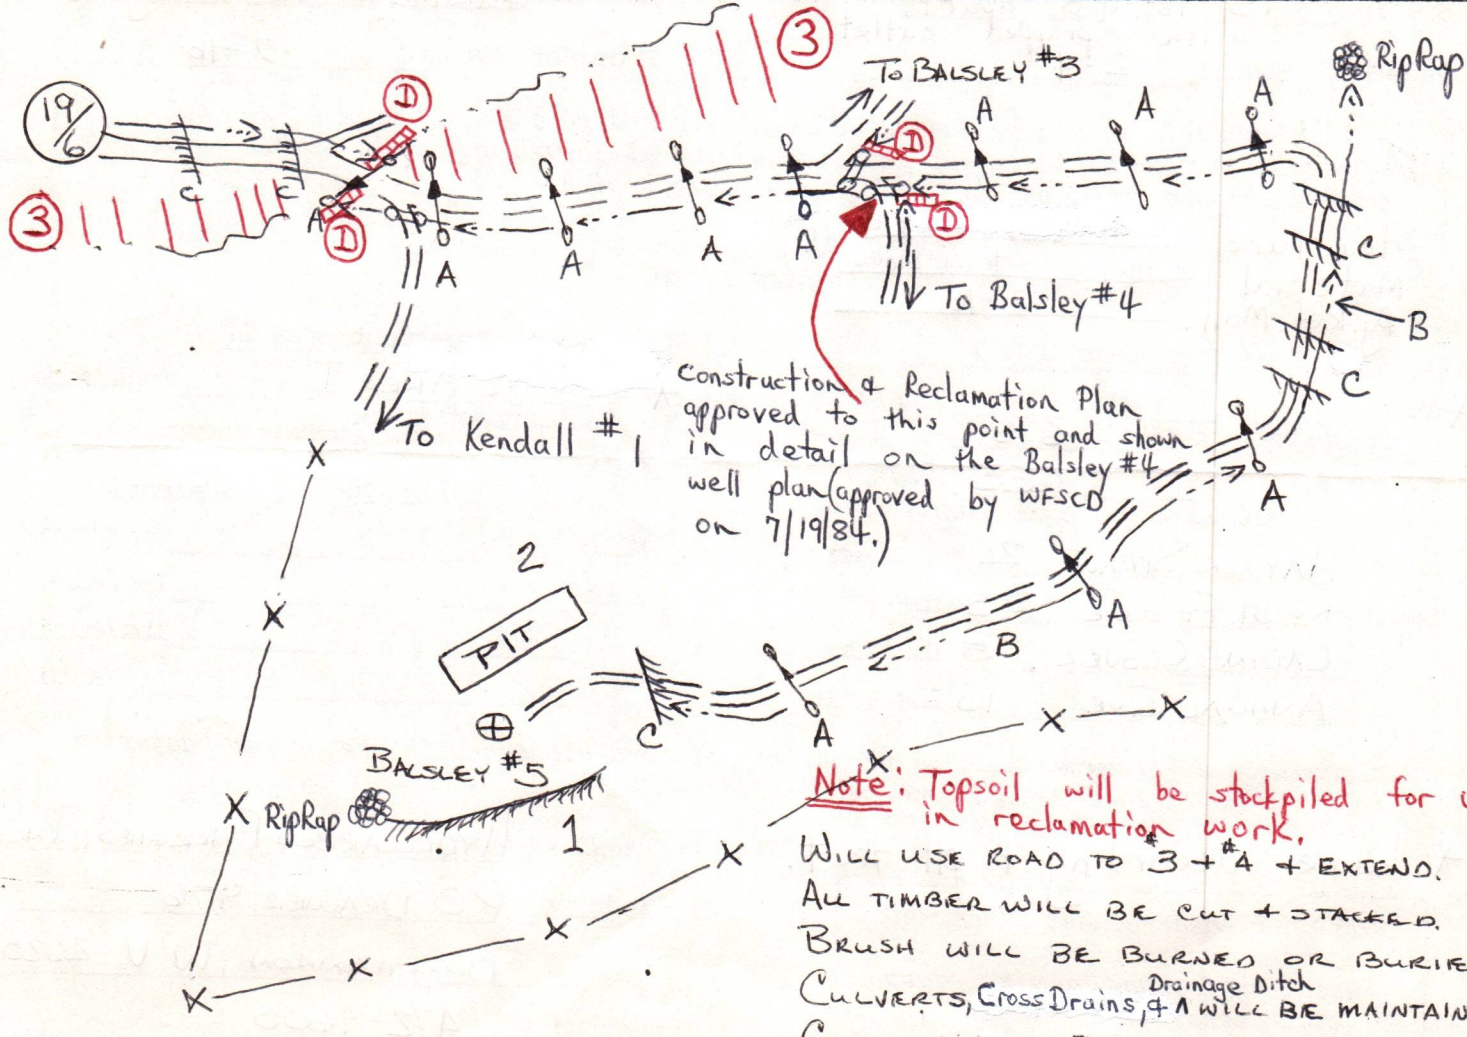 3
To BALSLEY #3
RipRap
19/6
D
A
A
A
D
C
C
3
A
D
A
A
A
A
D
C
To Balsley #4
B
C
To Kendall #1
Construction & Reclamation Plan
approved to this point and shown
in detail on the Balsley #4
well plan (approved by WFSCD
on 7/19/84.)
A
2
PIT
A
B
C
A
BALSLEY #5
RipRap
1
Note: Topsoil will be stockpiled for
in reclamation work.
WILL USE ROAD TO #3 + #4 + EXTEND.
ALL TIMBER WILL BE CUT + STACKED.
BRUSH WILL BE BURNED OR BURIE
Drainage Ditch
CULVERTS, Cross Drains, & ∧ WILL BE MAINTAIN